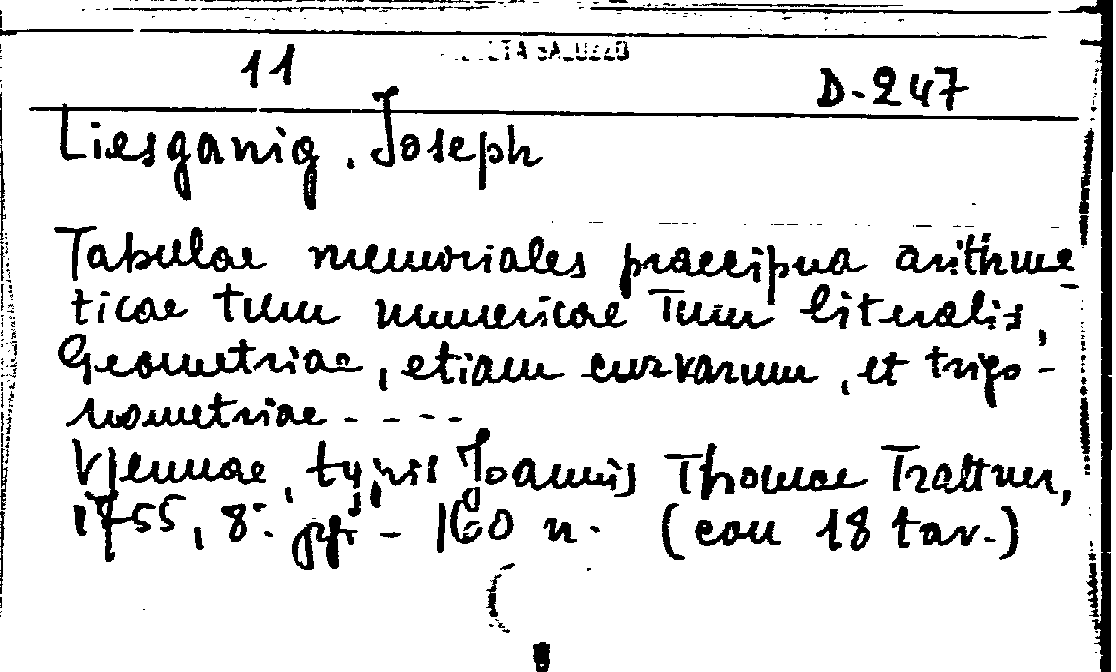 11
SALUZZO
D-247
Liesganig. Joseph
Tabulae memoriales praecipua arithme-
ticae tum numericae Tum literalis,
Geometriae, etiam curvarum, et trigo-
nometriae - - - -
Viennae, typis Joannis Thomae Trattner,
1755, 8°. pp. - 160 n. (con 18 tav.)